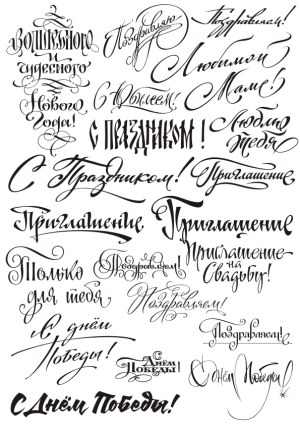 Волшебного
и
чудесного
Нового
Года!
Поздравляю
Поздравляем!
Любимой
Маме!
С Юбилеем!
Люблю
тебя
с праздником!
С Праздником!
Приглашение
Приглашение
Приглашение
Приглашение
на
Свадьбу!
Только
для тебя
Поздравляем!
Поздравляем!
С днём
Победы!
Поздравляем!
С Днём
Победы!
С Днём Победы!
С Днём Победы!